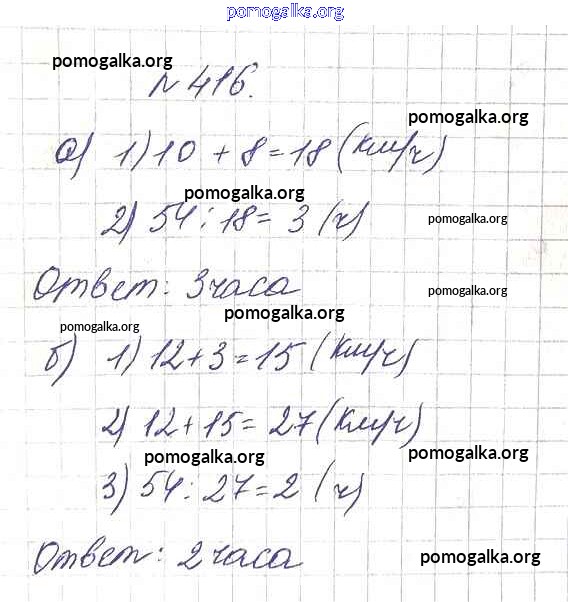 pomogalka.org
pomogalka.org
№ 416.
pomogalka.org
а) 1) 10 + 8 = 18 (км/ч)
pomogalka.org
2) 54 : 18 = 3 (ч)
pomogalka.org
Ответ: 3 часа
pomogalka.org
pomogalka.org
pomogalka.org
б) 1) 12 + 3 = 15 (км/ч)
2) 12 + 15 = 27 (км/ч)
pomogalka.org
pomogalka.org
3) 54 : 27 = 2 (ч)
Ответ: 2 часа
pomogalka.org